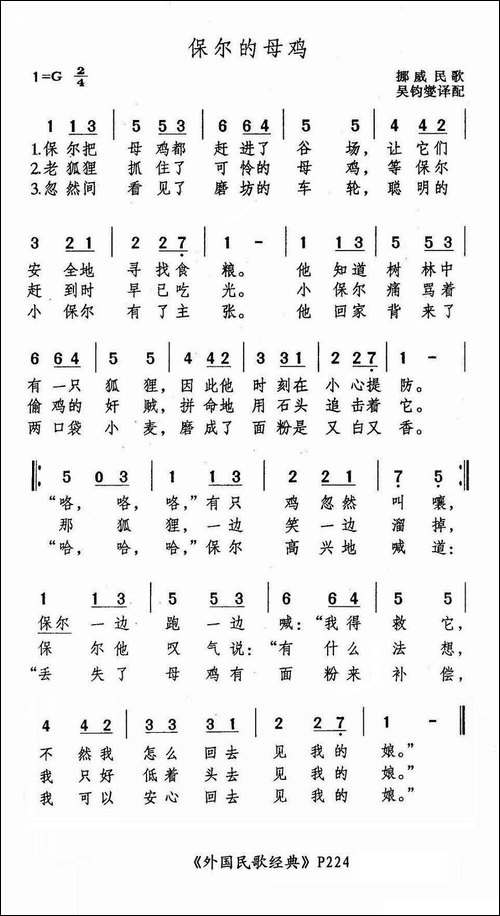 保尔的母鸡
1=G 2/4 挪威民歌
吴钧燮译配
1 1 3 | 5 5 3 | 6 6 4 | 5 5 | 4 4 2 |
1.保尔把 母鸡都 赶进了 谷场, 让它们
2.老狐狸 抓住了 可怜的 母鸡, 等保尔
3.忽然间 看见了 磨坊的 车轮, 聪明的
3 2 1 | 2 2 7 | 1 - | 1 1 3 | 5 5 3 |
安全地 寻找食 粮。 他知道 树林中
赶到时 早已吃 光。 小保尔 痛骂着
小保尔 有了主 张。 他回家 背来了
6 6 4 | 5 5 | 4 4 2 | 3 3 1 | 2 2 7 | 1 - |
有一只 狐狸, 因此他 时刻在 小心提 防。
偷鸡的 奸贼, 拼命地 用石头 追击着 它。
两口袋 小麦, 磨成了 面粉是 又白又 香。
‖: 5 0 3 | 1 1 3 | 2 2 1 | 7 5 |
“咯, 咯, 咯,”有只 鸡忽然 叫嚷,
那狐狸, 一边 笑一边 溜掉,
“哈, 哈, 哈,”保尔 高兴地 喊道:
1 1 3 | 5 5 3 | 6 6 4 | 5 5 |
保尔一边 跑一边 喊:“我得 救它,
保尔他 叹气说:“有什么 法想,
“丢失了 母鸡有 面粉来 补偿,
4 4 2 | 3 3 3 1 | 2 2 7 | 1 - :‖
不然我 怎么回去 见我的 娘。”
我只好 低着头去 见我的 娘。”
我可以 安心回去 见我的 娘。”
《外国民歌经典》P224